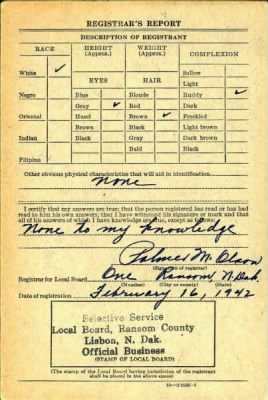 REGISTRAR'S REPORT
DESCRIPTION OF REGISTRANT
RACE HEIGHT (Approx.) WEIGHT (Approx.) COMPLEXION
White ✓ Sallow
EYES HAIR Light
Negro Blue Blonde Ruddy ✓
Gray ✓ Red Dark
Oriental Hazel Brown ✓ Freckled
Brown Black Light brown
Indian Black Gray Dark brown
Bald Black
Filipino
Other obvious physical characteristics that will aid in identification
None
I certify that my answers are true; that the person registered has read or has had
read to him his own answers; that I have witnessed his signature or mark and that
all of his answers of which I have knowledge are true, except as follows:
None to my knowledge
Palmer M. Olson
(Signature of registrar)
Registrar for Local Board One Ransom N. Dak.
(Number) (City or county) (State)
Date of registration February 16, 1942
Selective Service
Local Board, Ransom County
Lisbon, N. Dak.
Official Business
(STAMP OF LOCAL BOARD)
(The stamp of the Local Board having jurisdiction of the registrant
shall be placed in the above space)